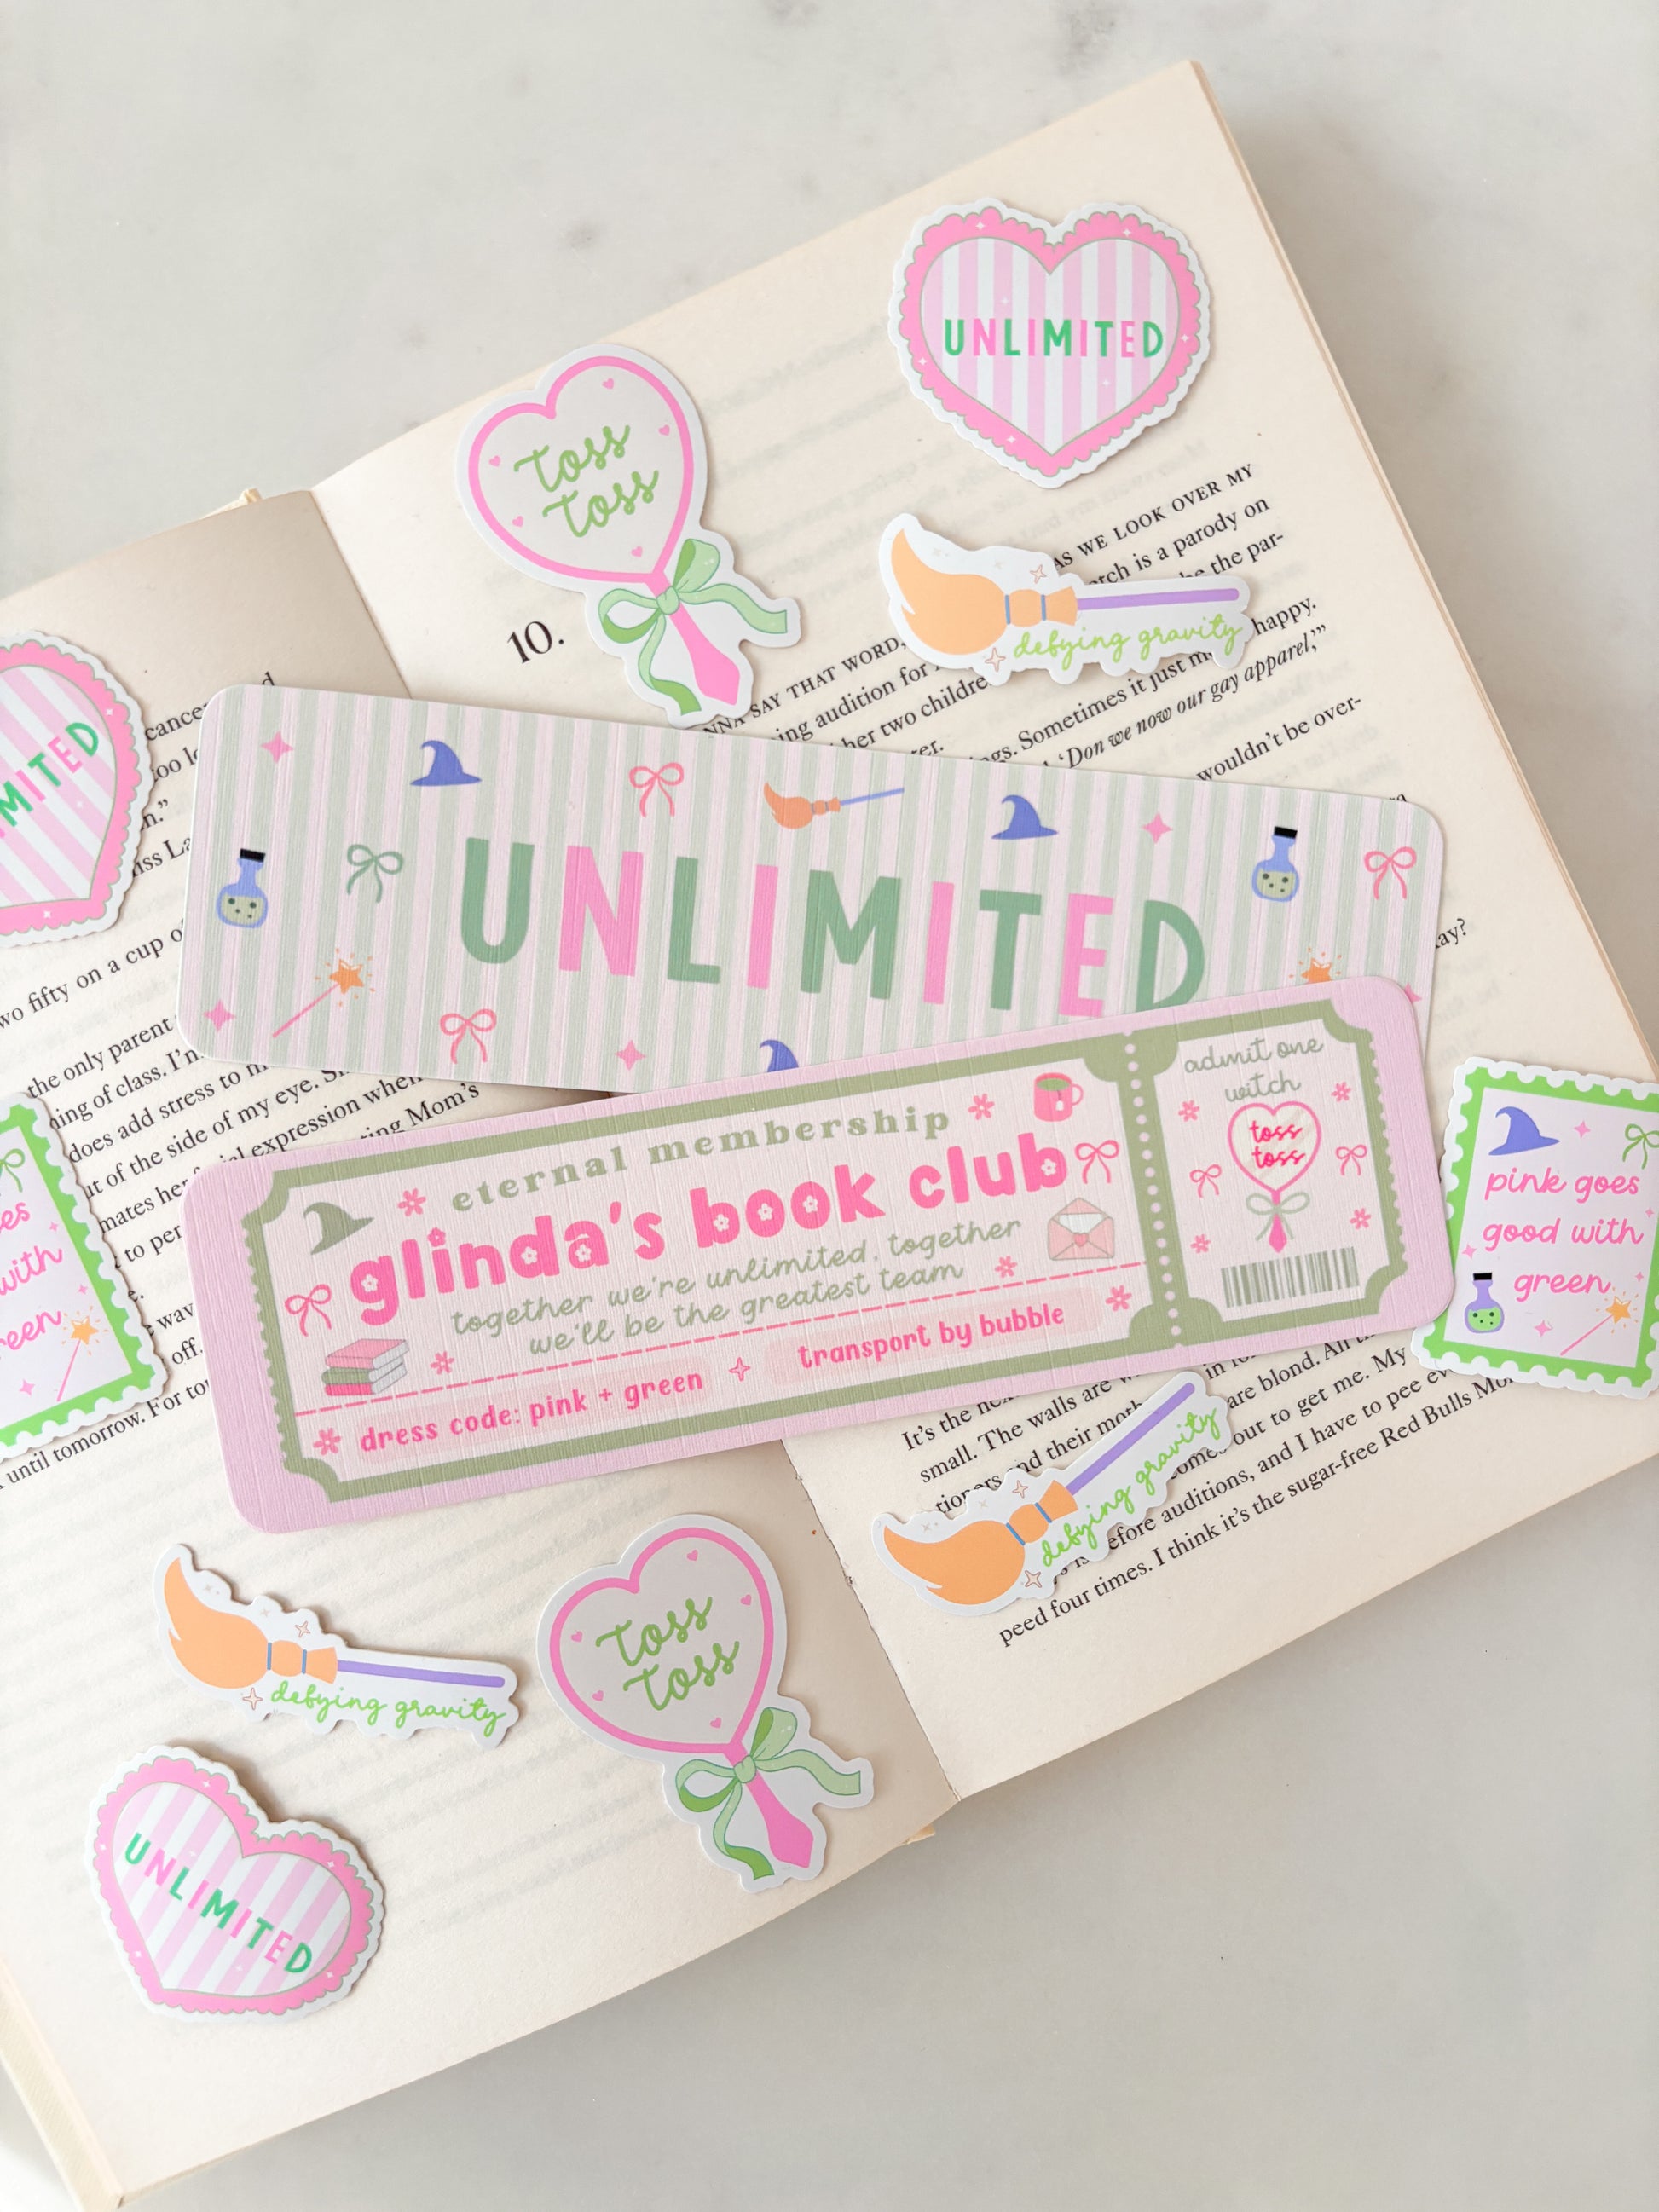 UNLIMITED
toss
toss
AS WE LOOK OVER MY
rch is a parody on
be the par-
defying gravity
happy.
10.
NNA SAY THAT WORD,
ing audition for
her two childre
ings. Sometimes it just m
'Don we now our gay apparel,'"
wouldn't be over-
cance
too lo
n."
iss La
wo fifty on a cup o
the only parent
ning of class. I'm
does add stress to m
ut of the side of my eye. S
mates her facial expression when
ing Mom's
to per
wav
off.
until tomorrow. For to
MITED
UNLIMITED
ay?
eternal membership
glinda's book club
together we're unlimited. together
we'll be the greatest team
dress code: pink + green
transport by bubble
admit one
witch
toss
toss
pink goes
good with
green
es
with
reen
It's the ne
in
small. The walls are w
are blond. All t
tioners and their moth
comes out to get me. My
efore auditions, and I have to pee ev
peed four times. I think it's the sugar-free Red Bulls Mo
defying gravity
defying gravity
toss
toss
UNLIMITED